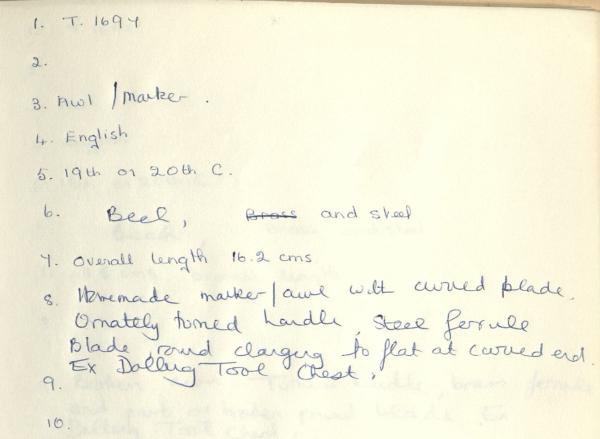 1. T. 1697
2.
3. Awl / marker.
4. English
5. 19th or 20th C.
6. and steel
7. Overall length 16.2 cms
8. Homemade marker / awl with curved blade.
Ornately turned handle, Steel ferrule
Blade round changing to flat at curved end.
Ex Tool Chest.
9.
10.